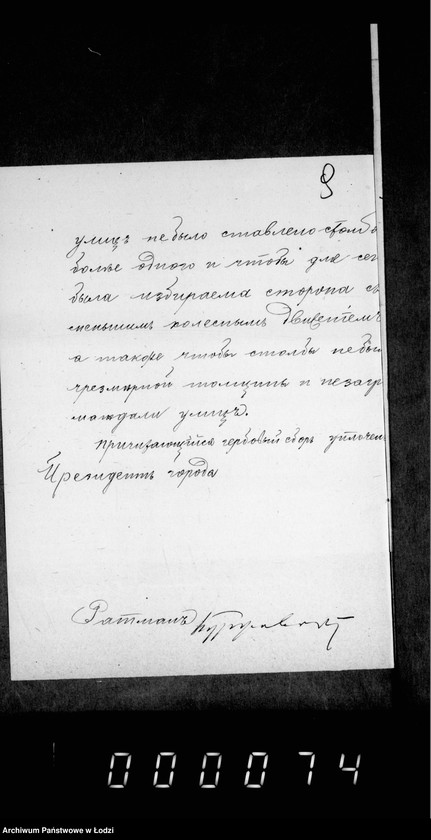 9
улицъ не было ставлено столбо
болѣе одного и чтобы для сег
была избираема сторона съ
меньшимъ колеснымъ движеніемъ
а также чтобы столбы не был
чрезмѣрной толщины и не загр
мождали улицъ.
Причитающійся гербовый сборъ уплочен
Президентъ города
Ратманъ
000074
Archiwum Państwowe w Łodzi